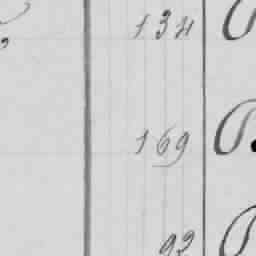 134
169
93